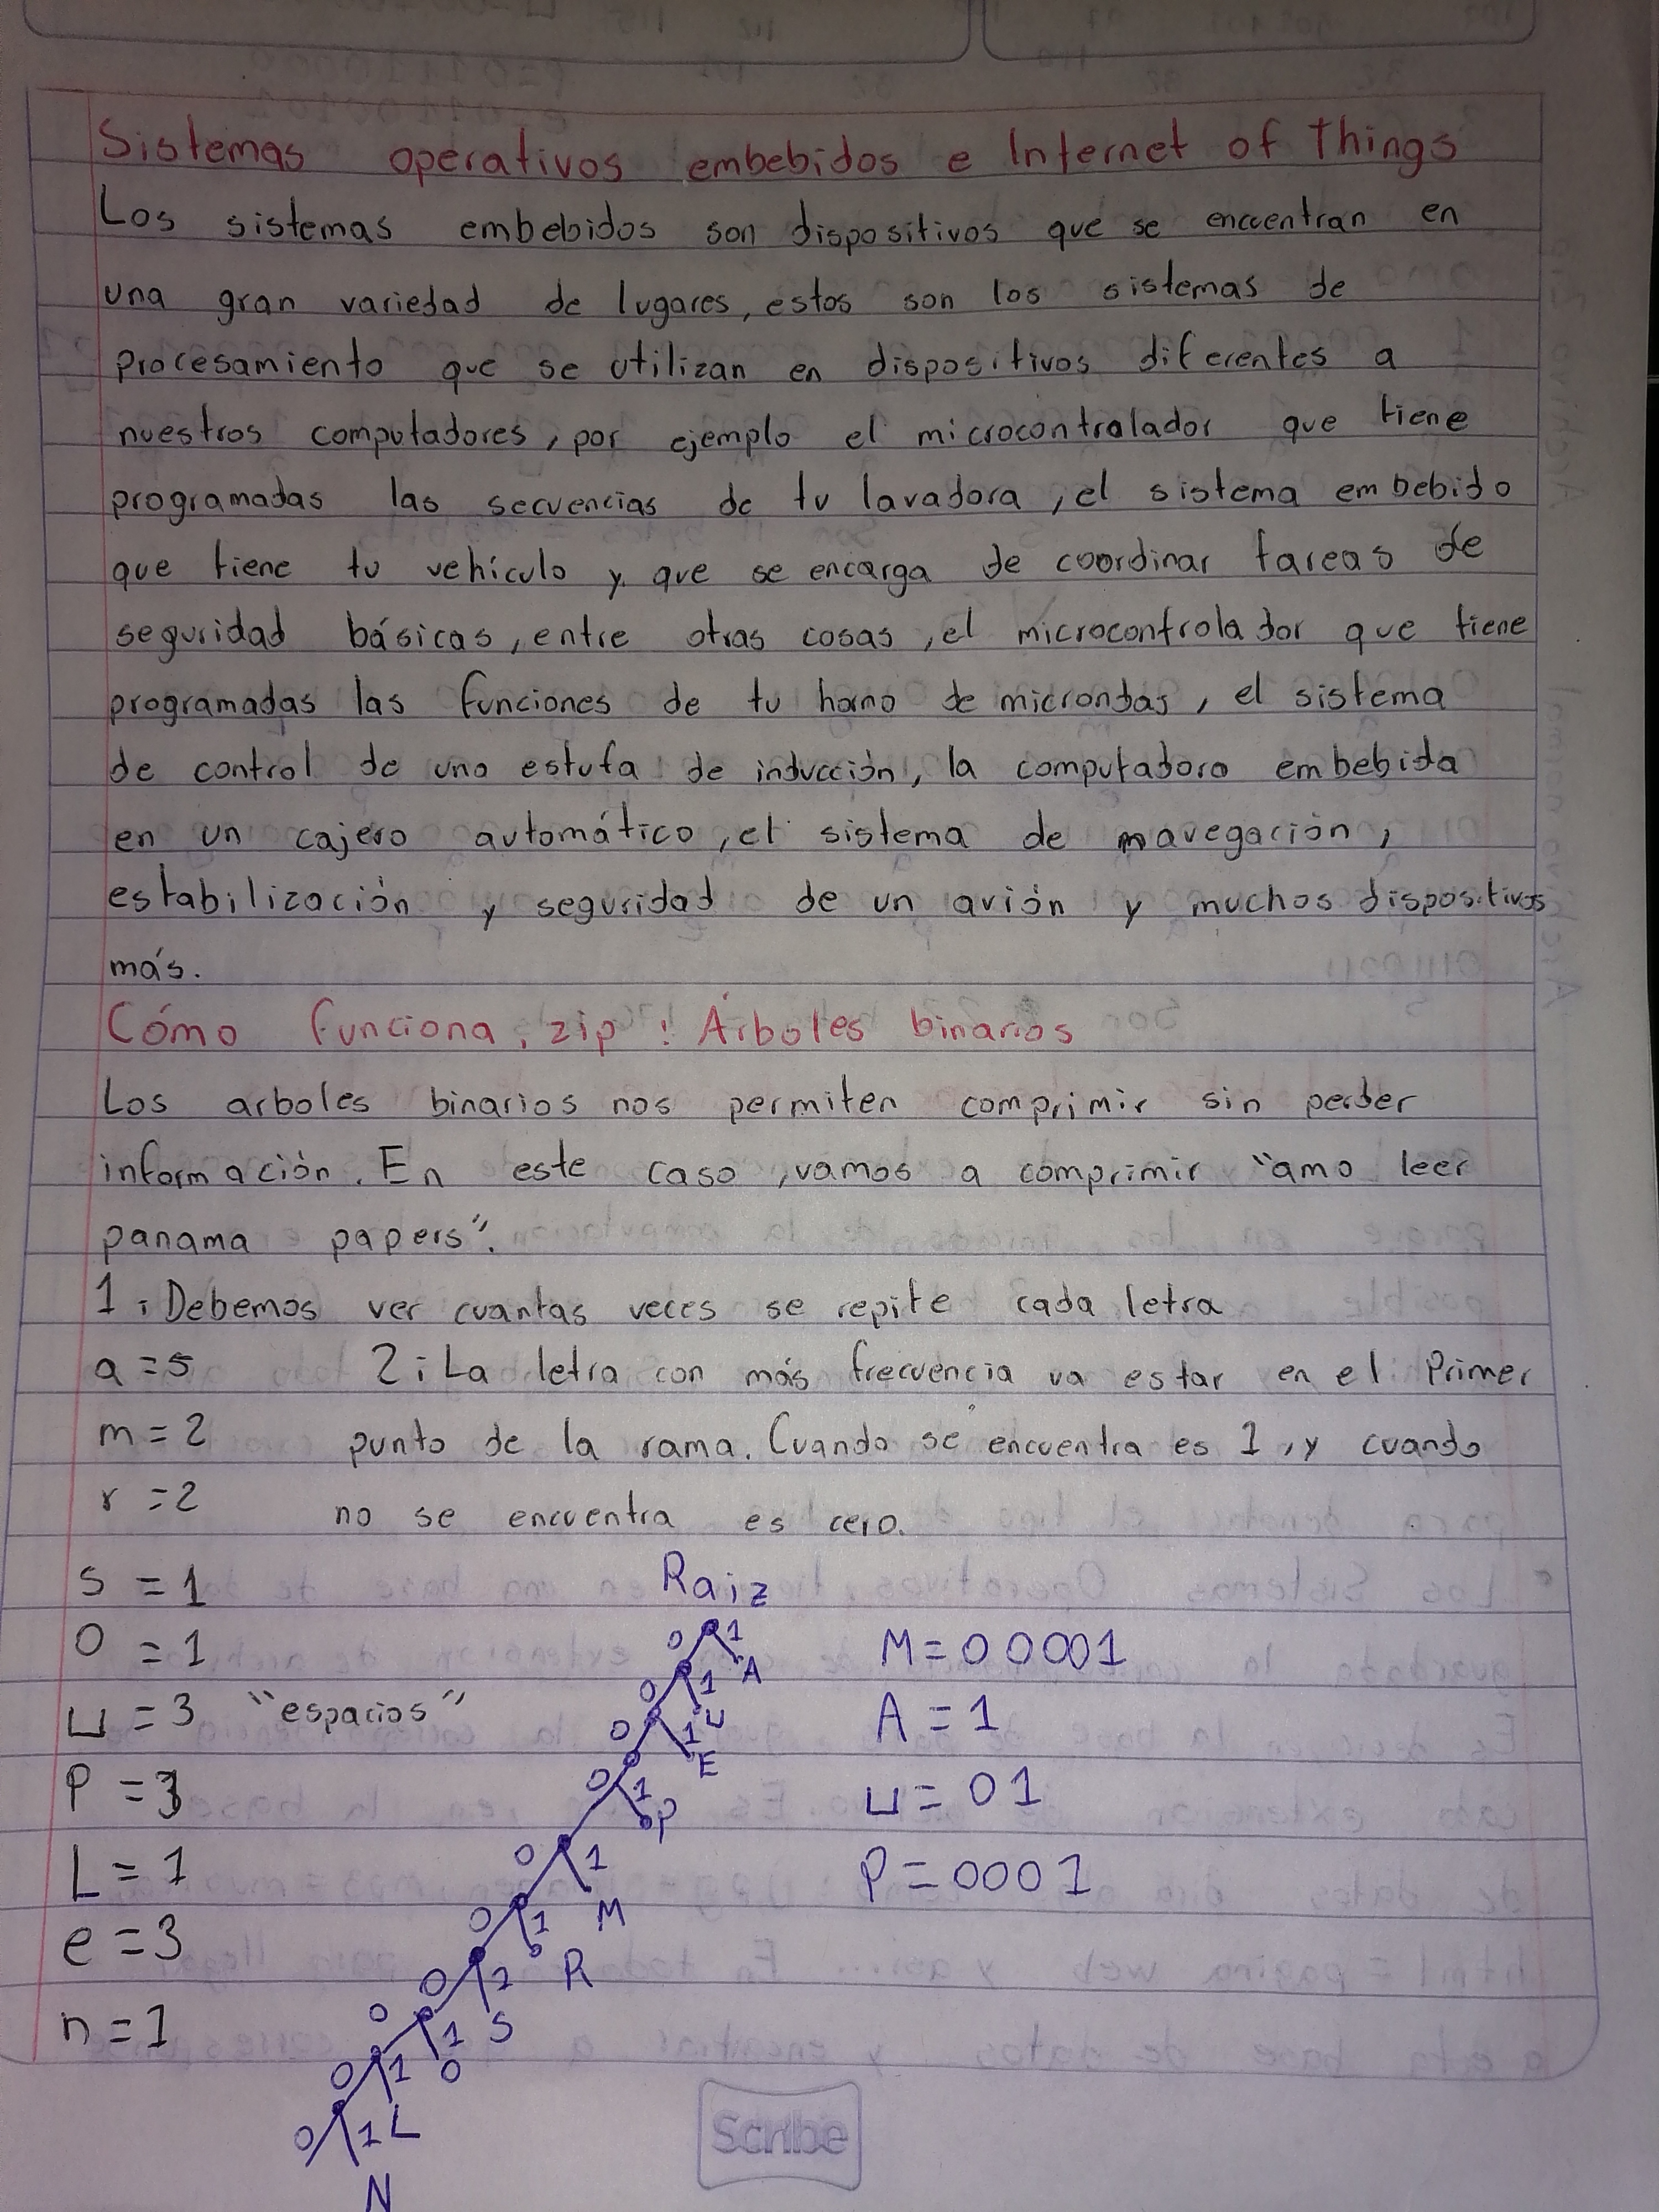 Sistemas operativos embebidos e Internet of Things
Los sistemas embebidos son dispositivos que se encuentran en
una gran variedad de lugares, estos son los sistemas de
procesamiento que se utilizan en dispositivos diferentes a
nuestros computadores, por ejemplo el microcontralador que tiene
programadas las secuencias de tu lavadora, el sistema embebido
que tiene tu vehículo y que se encarga de coordinar tareas de
seguridad básicas, entre otras cosas, el microcontrolador que tiene
programadas las funciones de tu horno de microndas, el sistema
de control de una estufa de inducción, la computadora embebida
en un cajero automático, el sistema de navegación,
estabilización y seguridad de un avión y muchos dispositivos
más.
Cómo funciona .zip : Árboles binarios
Los arboles binarios nos permiten comprimir sin perder
información. En este caso, vamos a comprimir "amo leer
panama papers".
1: Debemos ver cuantas veces se repite cada letra
a = 5 2: La letra con más frecuencia va estar en el Primer
m = 2 punto de la rama. Cuando se encuentra es 1, y cuando
r = 2 no se encuentra es cero.
s = 1 Raiz
O = 1 0 1 M = 00001
A
⊔ = 3 "espacios" 0 1 ⊔ A = 1
0 1 E
P = 3 0 1 P ⊔ = 01
L = 1 0 1 M P = 0001
e = 3 0 1 R
0 1 S
n = 1 0 1 O
0 1 L
0 1 N
Scribe